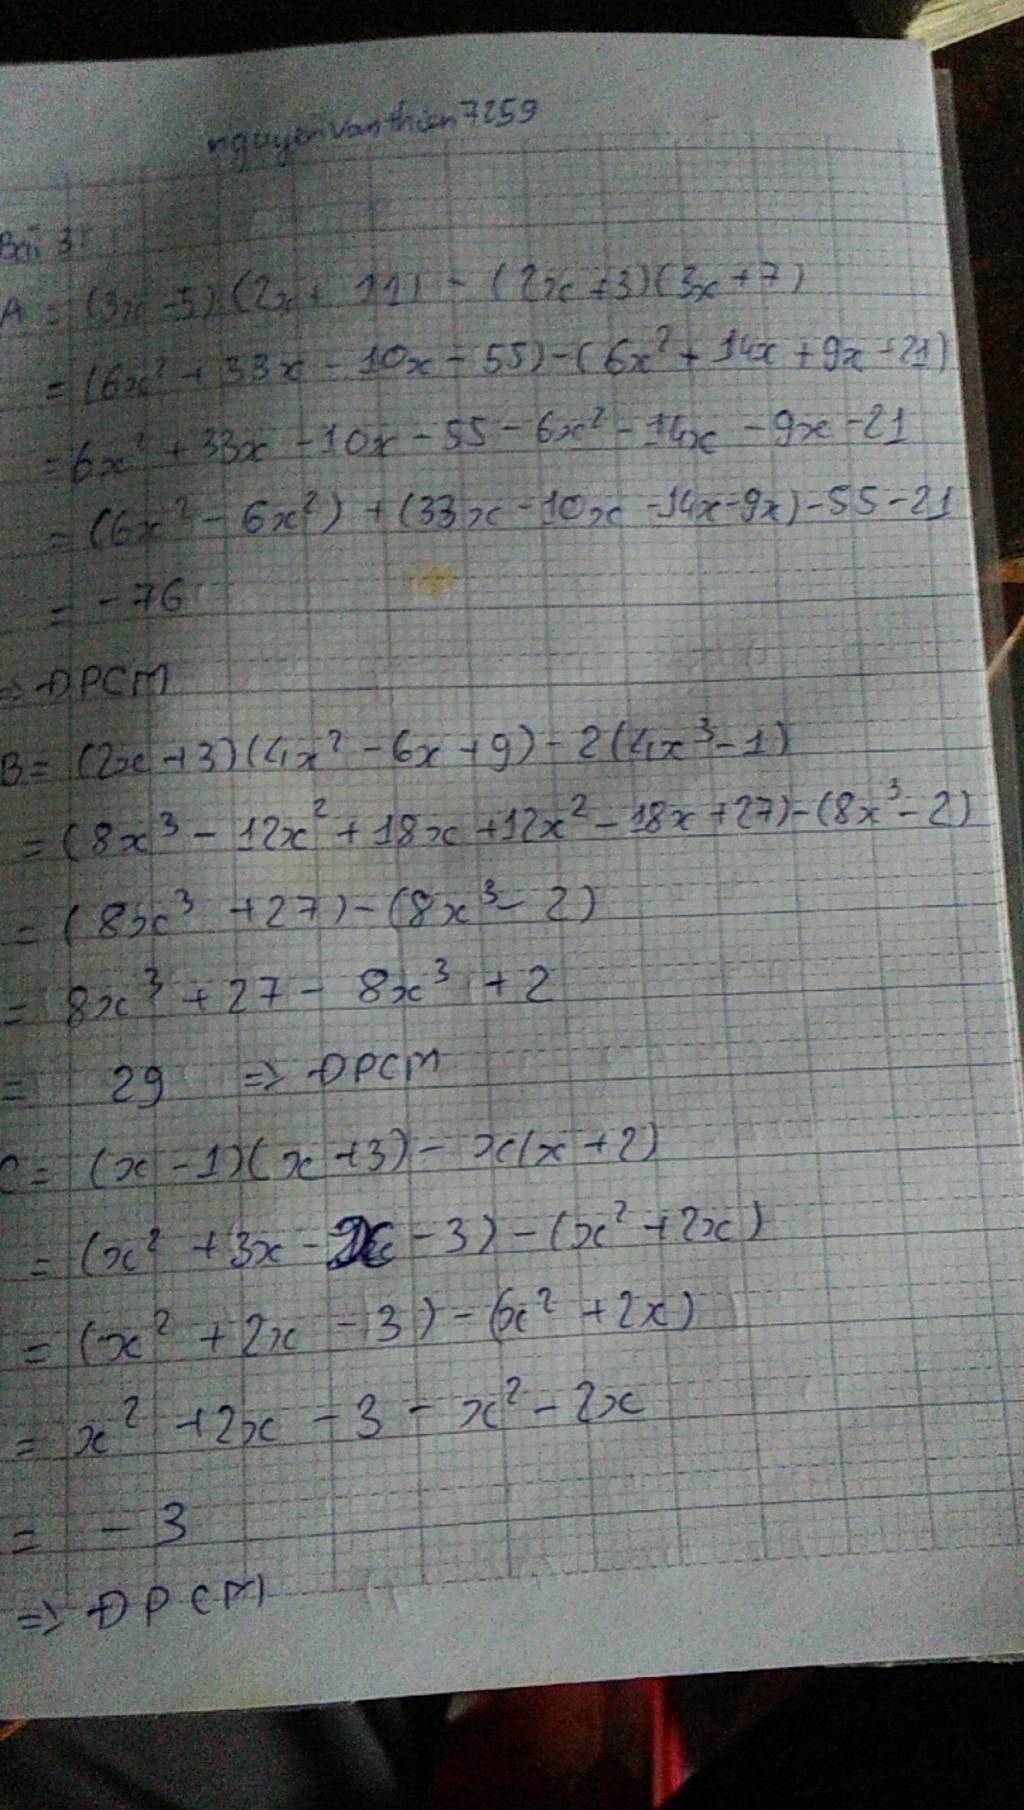 nguyenvanthien7259
Bài 3:
A = (3x - 5)(2x + 11) - (2x + 3)(3x + 7)
= (6x² + 33x - 10x - 55) - (6x² + 14x + 9x + 21)
= 6x² + 33x - 10x - 55 - 6x² - 14x - 9x - 21
= (6x² - 6x²) + (33x - 10x - 14x - 9x) - 55 - 21
= - 76
=> ĐPCM
B = (2x + 3)(4x² - 6x + 9) - 2(4x³ - 1)
= (8x³ - 12x² + 18x + 12x² - 18x + 27) - (8x³ - 2)
= (8x³ + 27) - (8x³ - 2)
= 8x³ + 27 - 8x³ + 2
= 29 => ĐPCM
C = (x - 1)(x + 3) - x(x + 2)
= (x² + 3x - x - 3) - (x² + 2x)
= (x² + 2x - 3) - (x² + 2x)
= x² + 2x - 3 - x² - 2x
= - 3
=> ĐPCM